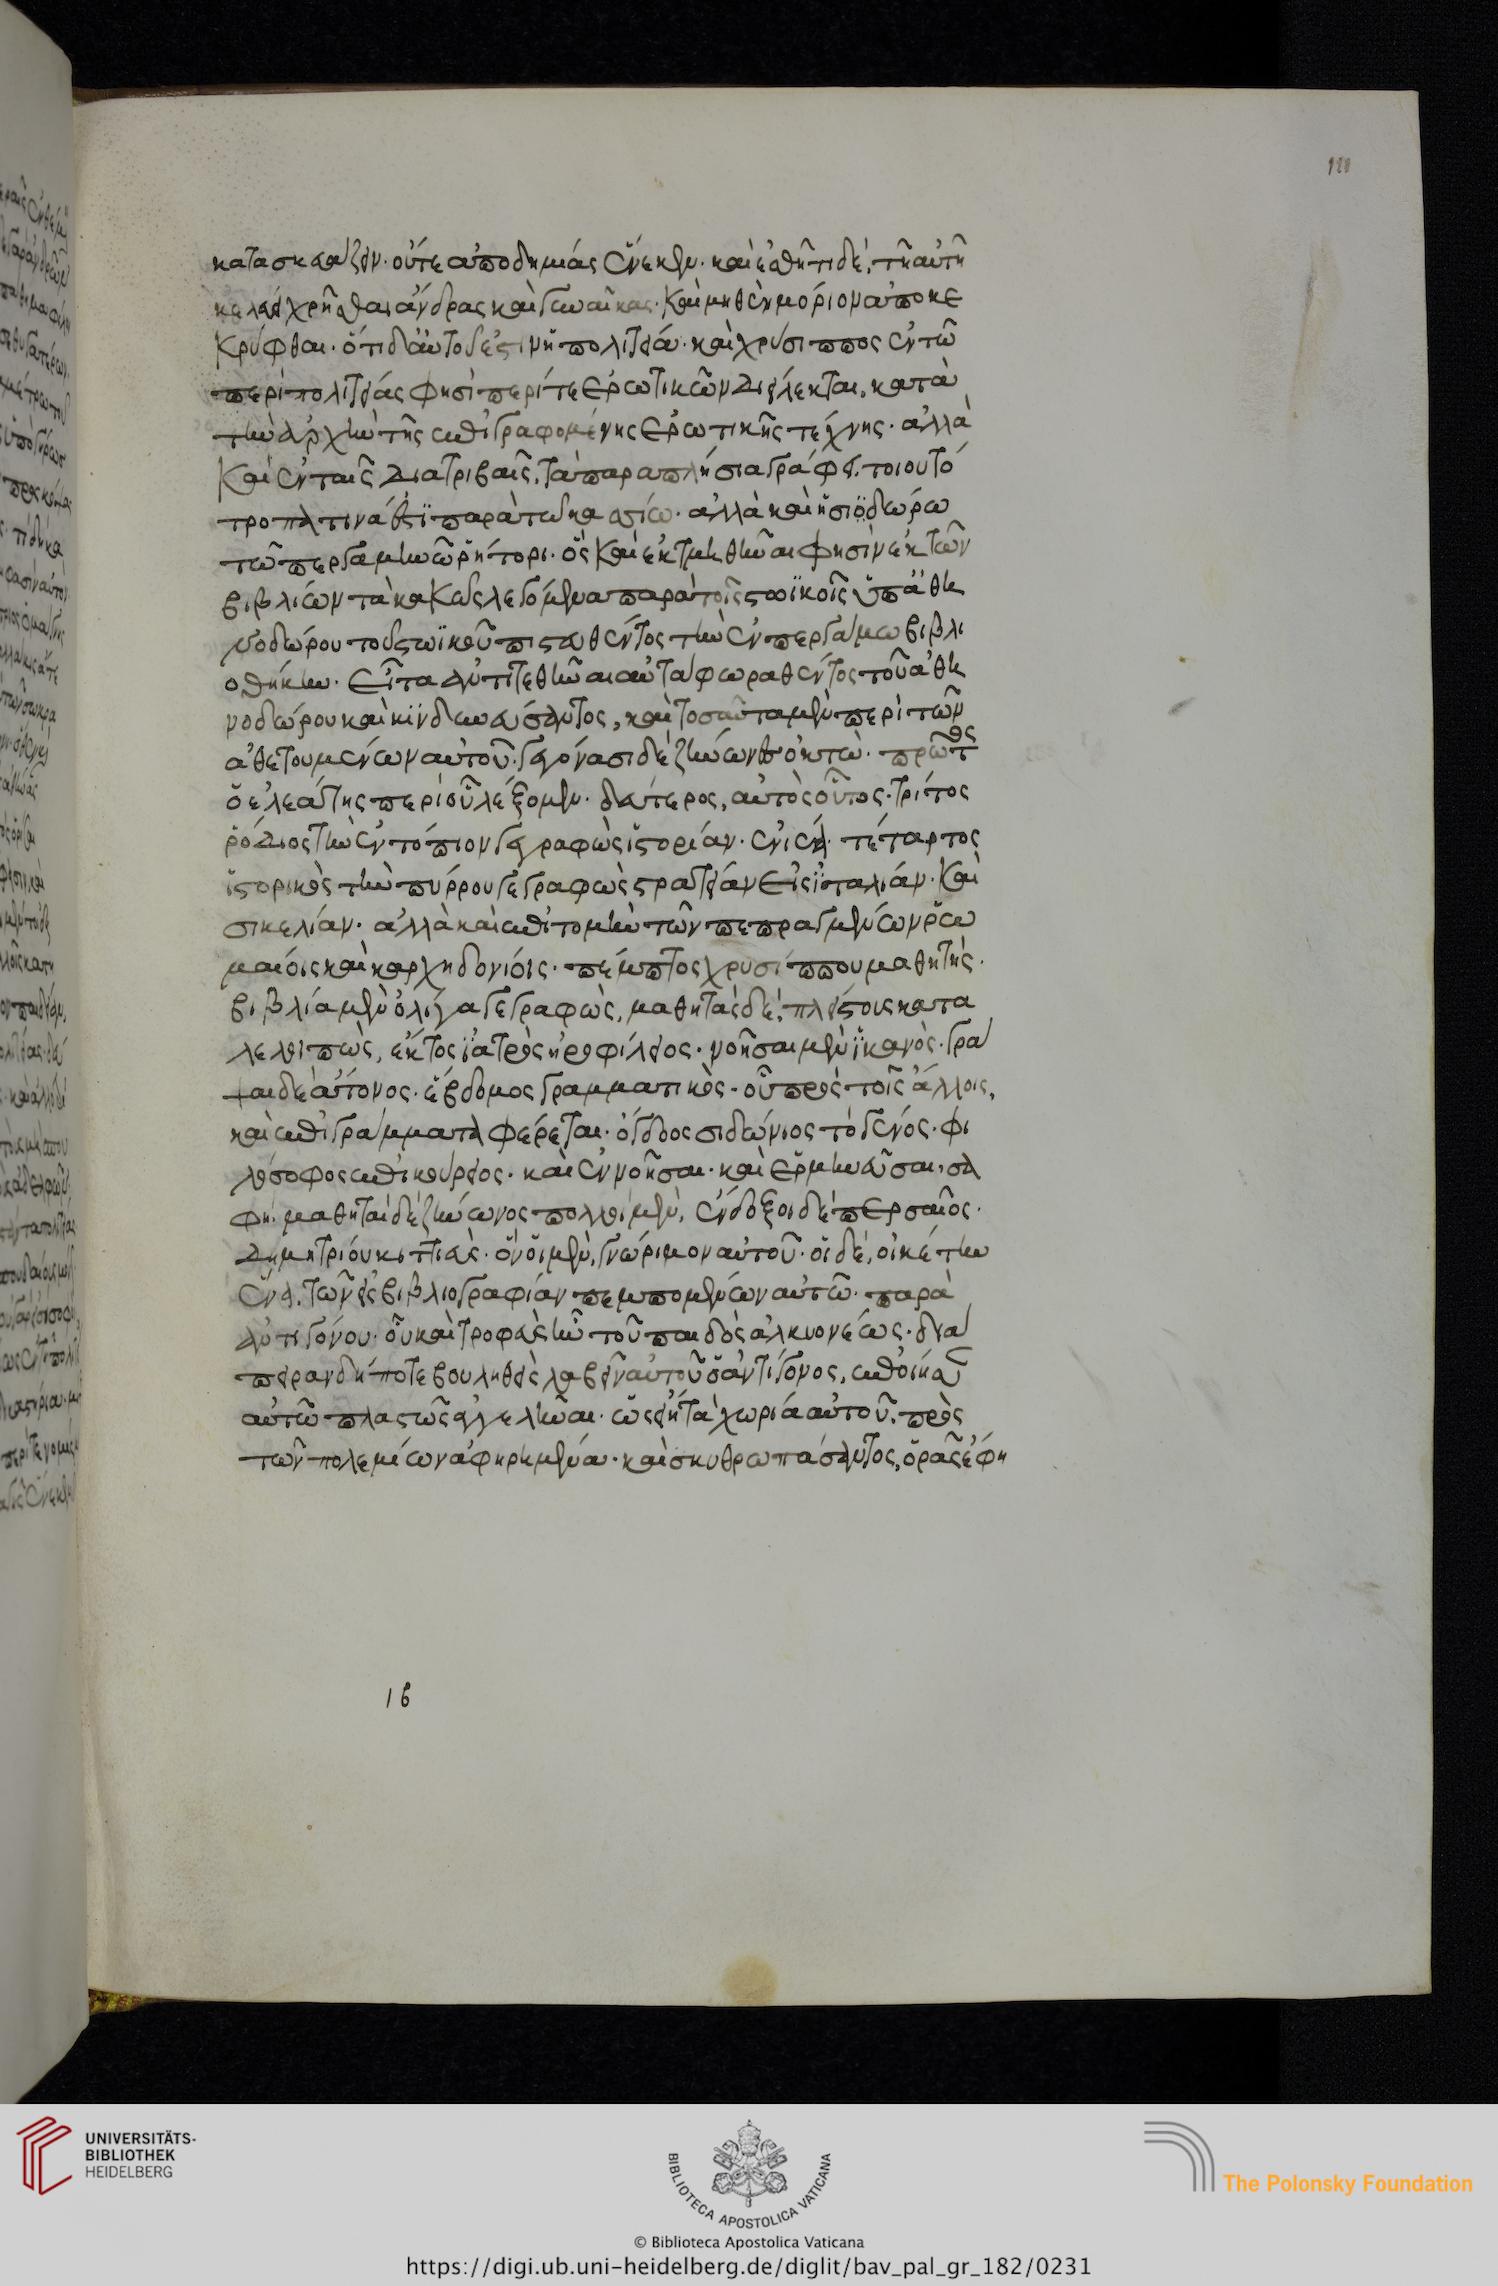 κατασκευάζειν· οὔτε ἀποδημίας ἕνεκεν· καὶ ἐσθῆτι δὲ, τῆ αὐτῆ
κελεύει χρῆσθαι ἄνδρας καὶ γυναῖκας· καὶ μηθὲν μόριον ἀποκε
κρύφθαι· ὅτι δ᾽ αὐτοῦ ἐστιν ἡ πολιτεία· καὶ χρύσιππος ἐν τῶ
περὶ πολιτείας φησὶ περί τε ἐρωτικῶν διείλεκται, κατὰ
τὴν ἀρχὴν τῆς ἐπιγραφομένης ἐρωτικῆς τέχνης· ἀλλὰ
καὶ ἐν ταῖς διατριβαῖς, τὰ παραπλήσια γράφει. τοιουτό
τροπα τινά ἐστϊ παρὰ τῶ κασίω· ἀλλὰ καὶ ἡσιοδώρω
τῶ περγαμηνῶ ῥήτορι· ὃς καὶ ἐκτμηθῆναι φησὶν ἐκ τῶν
βιβλίων τὰ κακῶς λεγόμενα παρὰ τοῖς στωϊκοῖς ὑπ᾽ ἀθη
νοδώρου τοῦ στωϊκοῦ πιστευθέντος τὴν ἐν περγάμω βιβλι
οθήκην· εἶτα ἀντιτεθῆναι αὐτὰ φωραθέντος τοῦ ἀθη
νοδώρου καὶ κινδυνεύσαντος, καὶ τοσαῦτα μὲν περὶ τῶν
ἀθετουμένων αὐτοῦ· γεγόνασι δὲ ζήνωνες ὀκτώ· πρῶτος
ὁ ἐλεάτης περὶ οὗ λέξομεν· δεύτερος, αὐτὸς οὗτος· τρίτος
ῥόδιος τὴν ἐντόπιον γεγραφὼς ἱστορίαν· ἐνιαί· τέταρτος
ἱστορικὸς τὴν πύρρου γεγραφὼς στρατείαν εἰς ἰταλίαν· καὶ
σικελίαν· ἀλλὰ καὶ ἐπιτομὴν τῶν πεπραγμένων ῥω
μαίοις καὶ καρχηδονίοις· πέμπτος χρυσίππου μαθητὴς·
βιβλία μὲν ὀλίγα γεγραφὼς, μαθητὰς δὲ, πλείστους κατα
λελοιπὼς, ἕκτος ἰατρὸς ἡροφίλειος· νοῆσαι μὲν ἱκανὸς· γρά
ψαι δὲ ἄτονος· ἕβδομος γραμματικὸς· οὗ πρὸς τοῖς ἄλλοις,
καὶ ἐπιγράμματα φέρεται· ὄγδοος σιδώνιος τὸ γένος· φι
λόσοφος ἐπικούρειος· καὶ ἐν νοῆσαι· καὶ ἑρμηνεῦσαι, σα
φή· μαθηταὶ δὲ ζήνωνος πολλοὶ μὲν, ἔνδοξοι δὲ περσαῖος·
δημητρίου κιττιεὺς· ὃν οἱ μὲν, γνώριμον αὐτοῦ· οἱ δὲ, οἰκέτην
ἕνα, τῶν εἰς βιβλιογραφίαν πεμπομένων αὐτῶ· παρὰ
ἀντιγόνου· οὗ καὶ τροφεὺς ἦν τοῦ παιδὸς ἀλκυονέως· διά
πειραν δή ποτε βουληθεὶς λαβεῖν αὐτοῦ ὁ ἀντίγονος, ἐποίησεν
αὐτῶ πλαστῶς ἀγγελῆναι· ὡς εἴη τὰ χωρία αὐτοῦ, πρὸς
τῶν πολεμίων ἀφηρημένα· καὶ σκυθρωπάσαντος, ὁρᾶς ἔφη
16
UNIVERSITÄTS-
BIBLIOTHEK
HEIDELBERG
BIBLIOTECA APOSTOLICA VATICANA
© Biblioteca Apostolica Vaticana
The Polonsky Foundation
https://digi.ub.uni-heidelberg.de/diglit/bav_pal_gr_182/0231